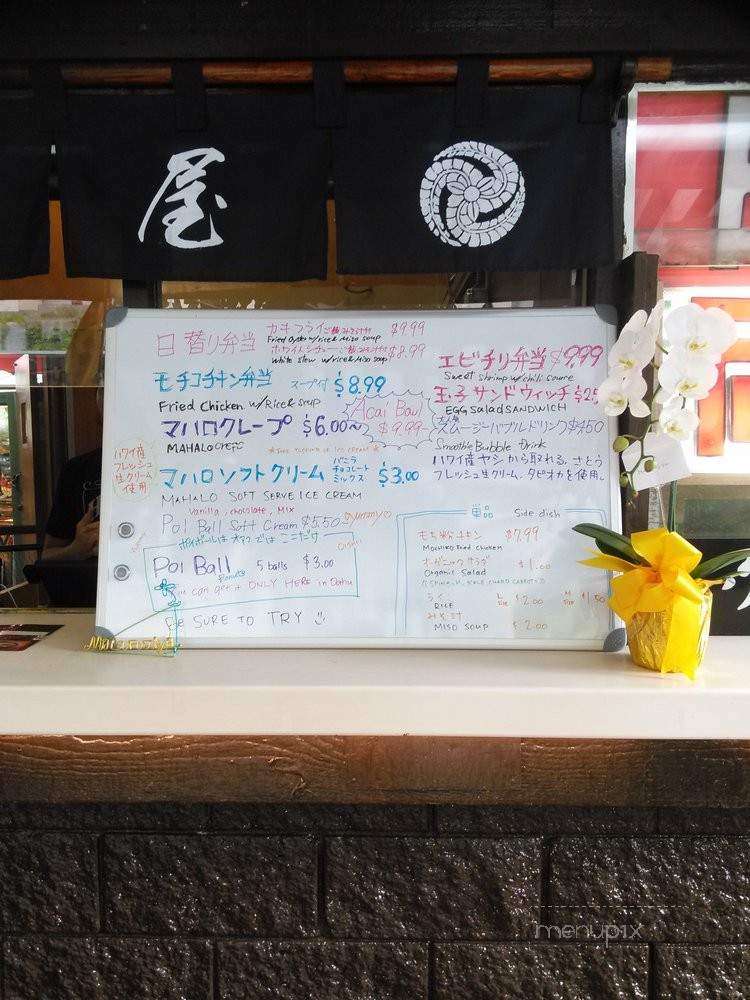 屋
日替り弁当
カキフライ $9.99
Fried Oyster w/rice & Miso soup
ホワイトシチュー $8.99
White Stew w/rice & Miso soup
モチコチキン弁当 スープ付 $8.99
Fried Chicken w/Rice & soup
マハロクレープ $6.00~
MAHALO
Acai Bowl
$9.99~
ハワイ産
フレッシュ
生クリーム
使用
マハロソフトクリーム
バニラ
チョコレート
ミックス
$3.00
MAHALO SOFT SERVE ICE CREAM
Vanilla, chocolate, MIX
Poi Ball Soft Cream $5.50
Yummy
ポイボールはオアフではここだけ
Poi Ball 5 balls $3.00
Donuts
You can get it ONLY HERE in Oahu
BE SURE TO TRY
エビチリ弁当 $9.99
Sweet shrimp w/chili sauce
玉子サンドウィッチ
EGG Salad SANDWICH
スムージーバブルドリンク $4.50
Smoothie Bubble Drink
ハワイ産ヤシから取れる、さとう
フレッシュ生クリーム、タピオカを使用。
単品 Side dish
もち粉チキン $7.99
Mochiko Fried Chicken
オーガニックサラダ
Organic Salad $1.00
RICE L size $2.00 M size $1.50
みそ汁
MISO SOUP $2.00
menupix